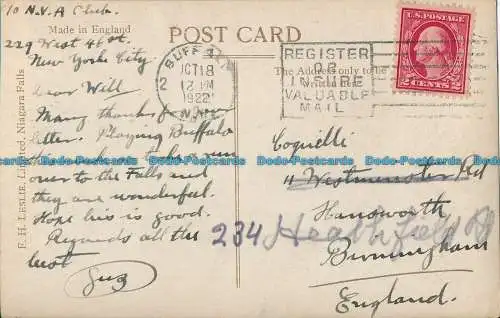 c/o N.V.A Club.
229 West 46 st.
New Yorke City
Made in England
POST CARD
The Address only to be
written here
BUFFALO
OCT 18
12 PM
1922
N.Y.
2
REGISTER
OR
INSURE
VALUABLE
MAIL
U.S. POSTAGE
2 CENTS 2
Dear Will
Many thanks for your
letter. Playing Buffalo
this week have been
over to the Falls and
they are wonderful.
Hope biz is good.
Regards all the
best
Gus
F. H. LESLIE, Limited, Niagara Falls
Coquelli
11 Westminster Rd
Handsworth
234 Heathfield Rd
Birmingham
England.
Dode-Postcards